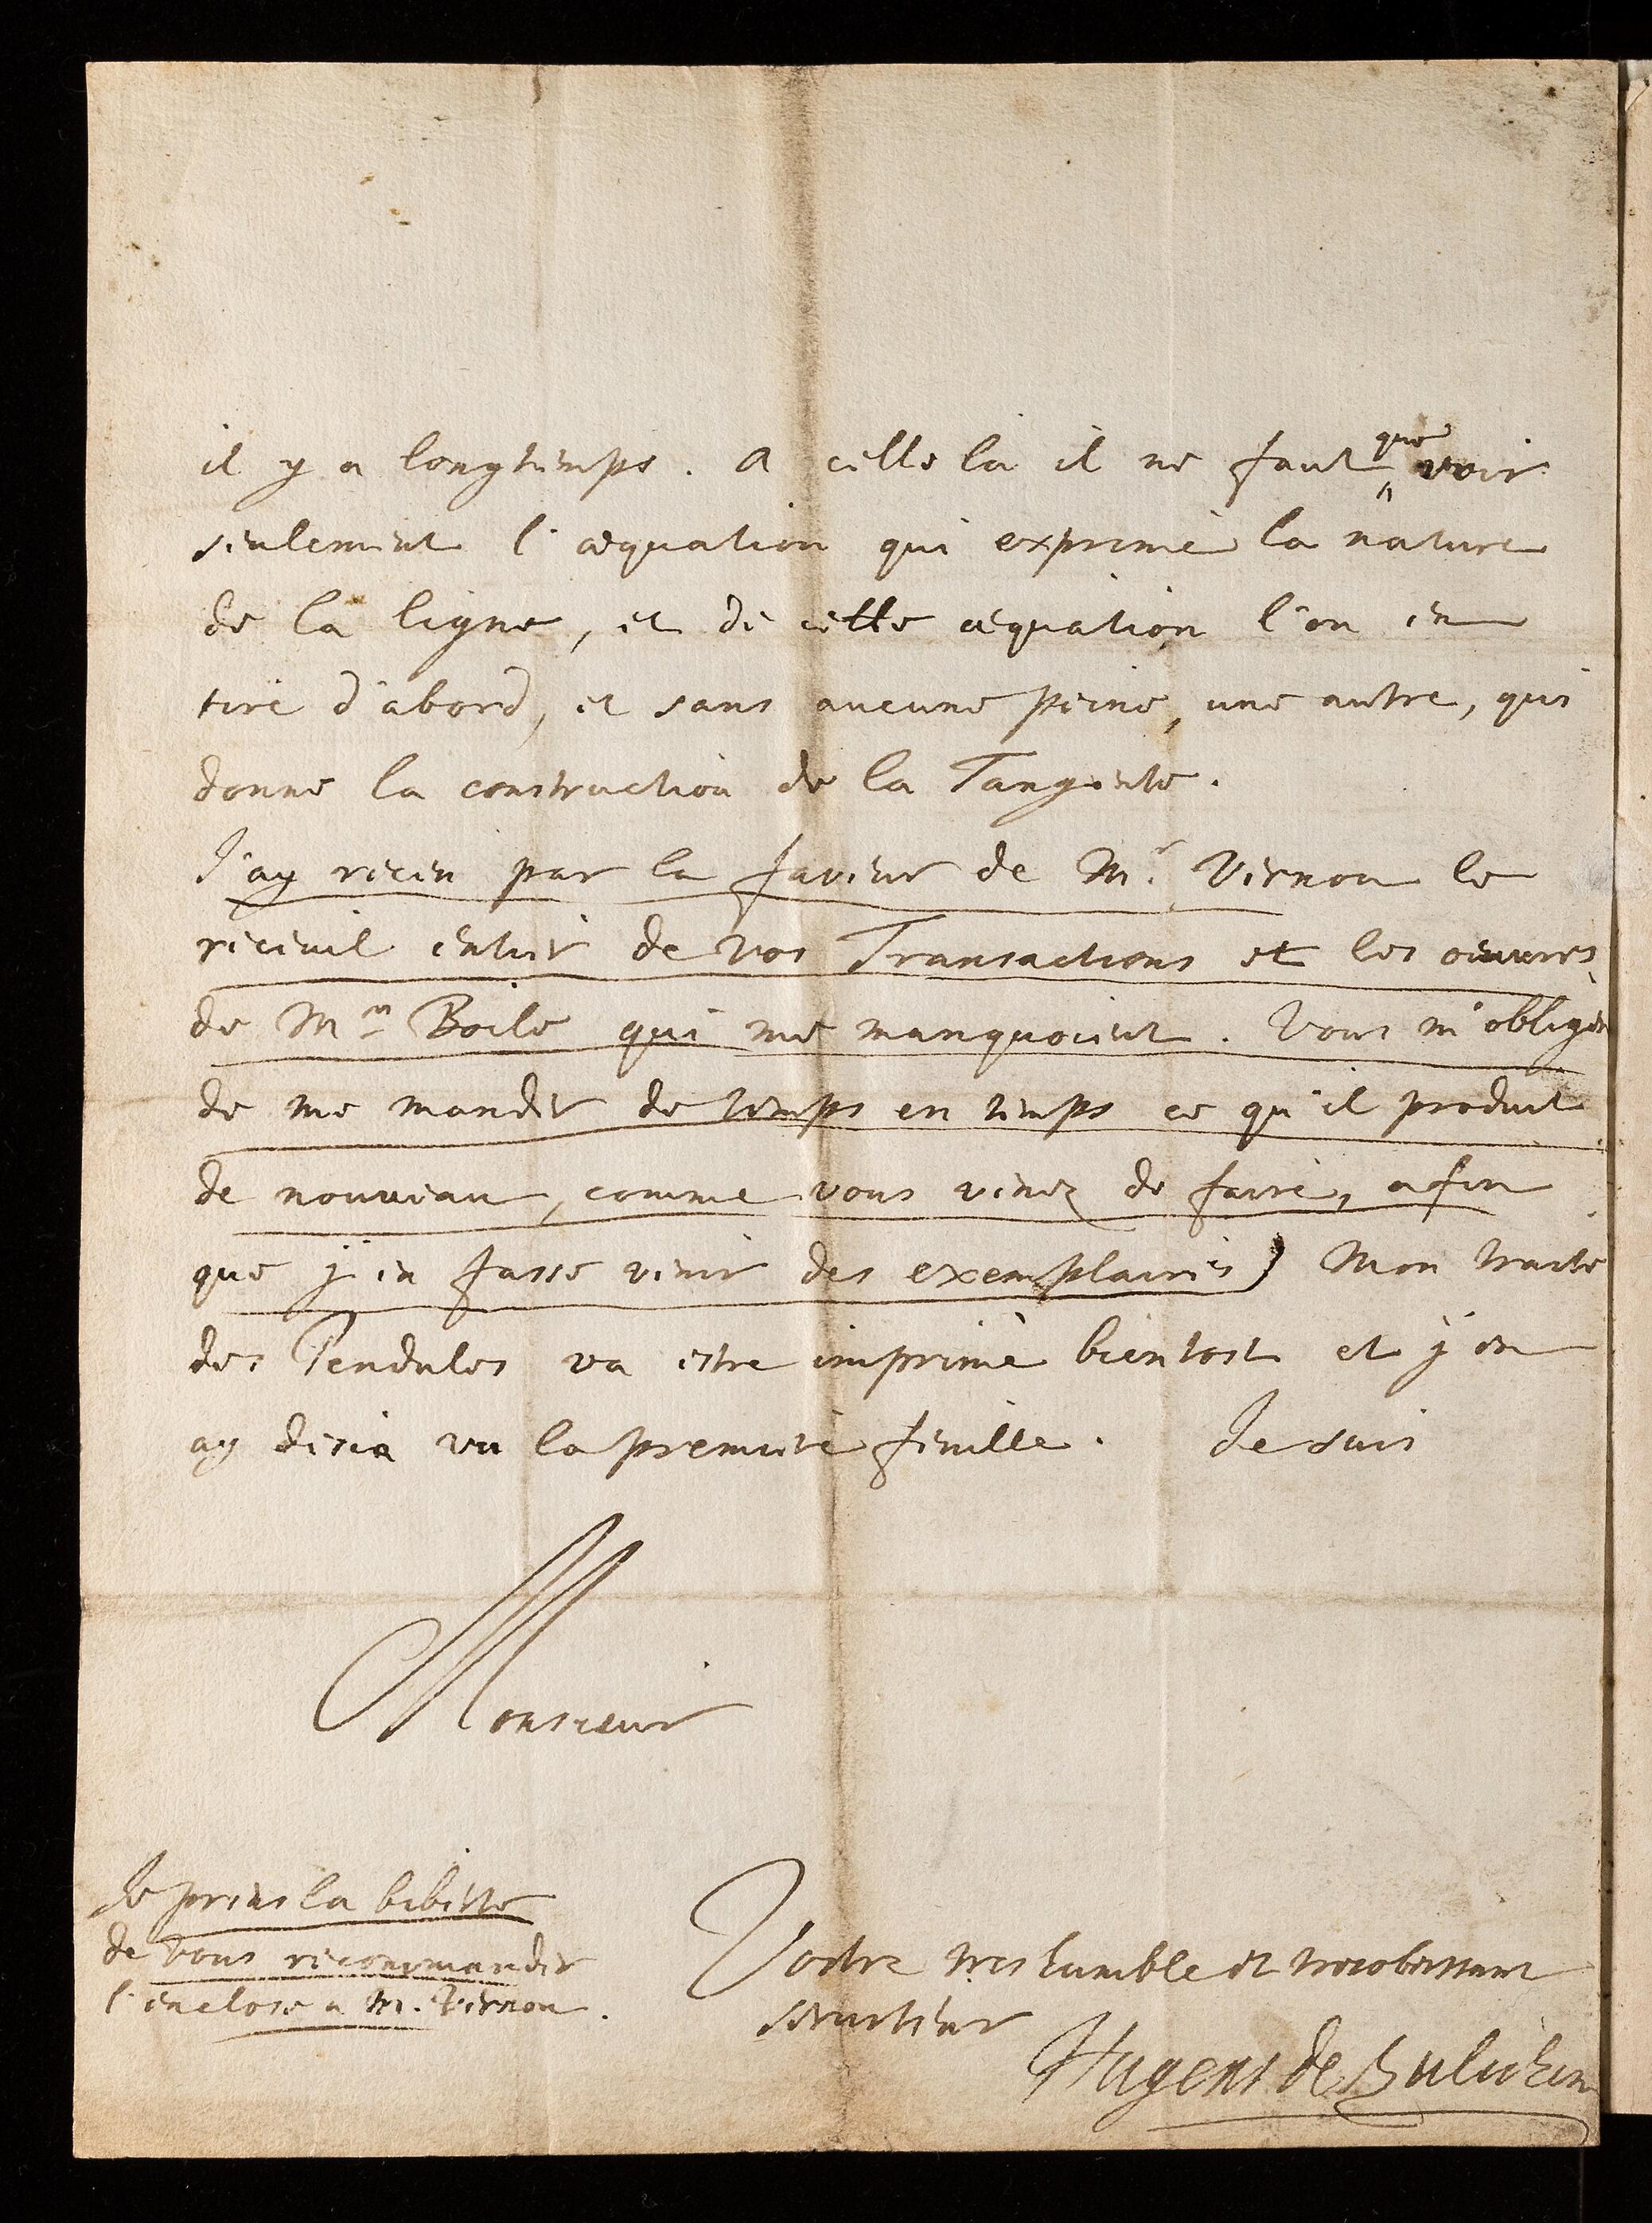 il y a longtemps. A celle la il ne faut que voir
seulement l'æquation qui exprime la nature
de la ligne, et de cette æquation l'on en
tire d'abord, et sans aucune peine, une autre, qui
donne la construction de la Tangente.
J'ay receu par la faveur de Mr. Vernon le
receuil entier de vos Transactions et les oeuvres
de Mr Boile qui me manquoient. Vous m'obligez
de me mander de temps en temps ce qu'il produit
de nouveau, comme vous venez de faire, afin
que j'en fasse venir des exemplaires) Mon traite
des Pendules va estre imprimè bientost et j'en
ay desia vu la premiere feuille. Je suis
Monsieur
Je prens la liberte
de vous recommander
l'enclose a M. Vernon.
Vostre tres humble et tresobeissant
serviteur
Hugens de Zulichem